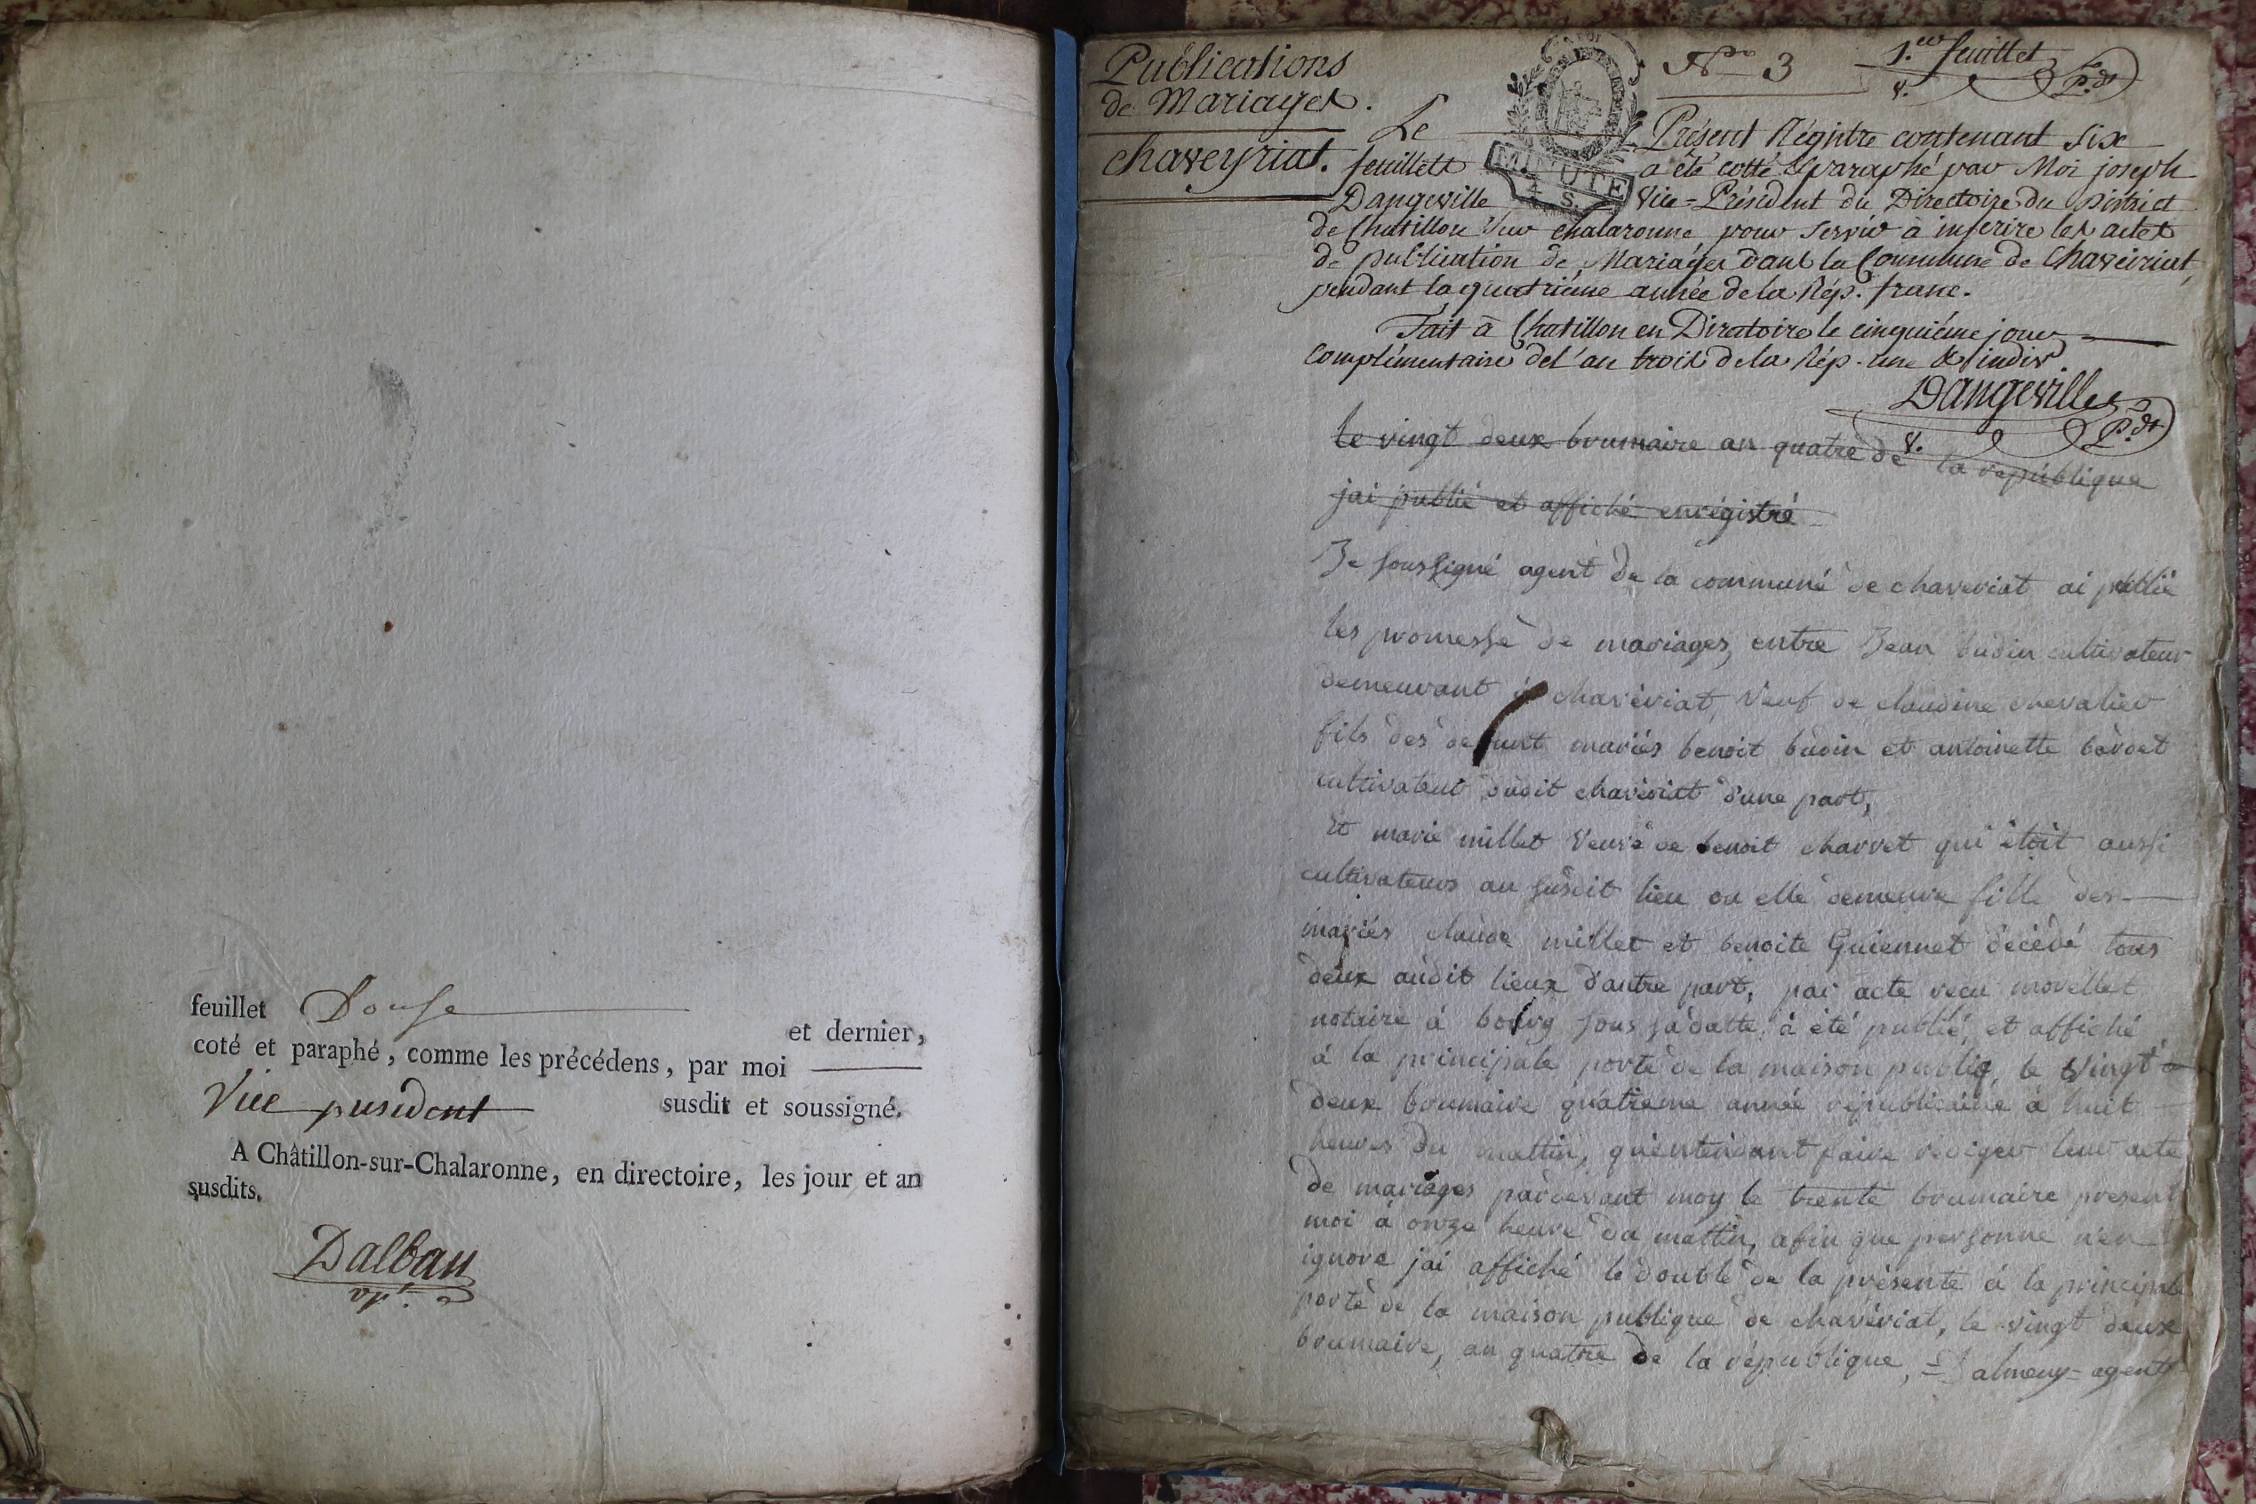 feuillet Douse
et dernier,
coté et paraphé, comme les précédens, par moi
Vice president susdit et soussigné.
A Châtillon-sur-Chalaronne, en directoire, les jour et an
susdits.
Dalban
Publications
de Mariages.
chaveyriat.
MINUTE
4 S.
No 3
1.er feuillet
P.dt
Le Présent Régistre contenant six
feuillets a été cotté & paraphé par Moi joseph
Dangeville Vice-Président du Directoire du District
de Chatillon sur chalaronne pour servir à inscrire les actes
de publication de Mariages dans la Commune de Chaveiriat,
pendant la quatrieme année de la Rép. franc.
Fait à Chatillon en Diretoire le cinquiéme jour
complémentaire de l'an trois de la Rép. une & indiv.
Dangeville
V. P.dt
le vingt deux brumaire an quatre de la republique
jai publié et affiché enrégistré
Je soussigné agent de la communé de chaveriat ai publié
les promesse de mariages, entre Jean budin cultivateur
demeurant à chavériat, veuf de claudine chevalier
fils des defunt mariés benoit budin et antoinette
cultivateur dudit chavériat d'une part,
Et marie millet veuve de benoit charvet qui étoit aussi
cultivateurs au susdit lieu ou elle demeure fille des
mariés claude millet et benoite Guiennet décédé tous
deux audit lieux d'autre part, par acte recu morellet
notaire à bourg sous sa datte, à été publié, et affiché
à la principale porte de la maison public, le vingt
deux brumaire quatrieme année républicaine à huit
heures du mattin, qu'entendant faire rediger leur acte
de mariages pardevant moy le trente brumaire present
moi à onze heure du mattin, afin que personne n'en
ignore jai affiché le double de la présente à la principale
porte de la maison publique de chavériat, le vingt deux
brumaire, an quatre de la république, agent